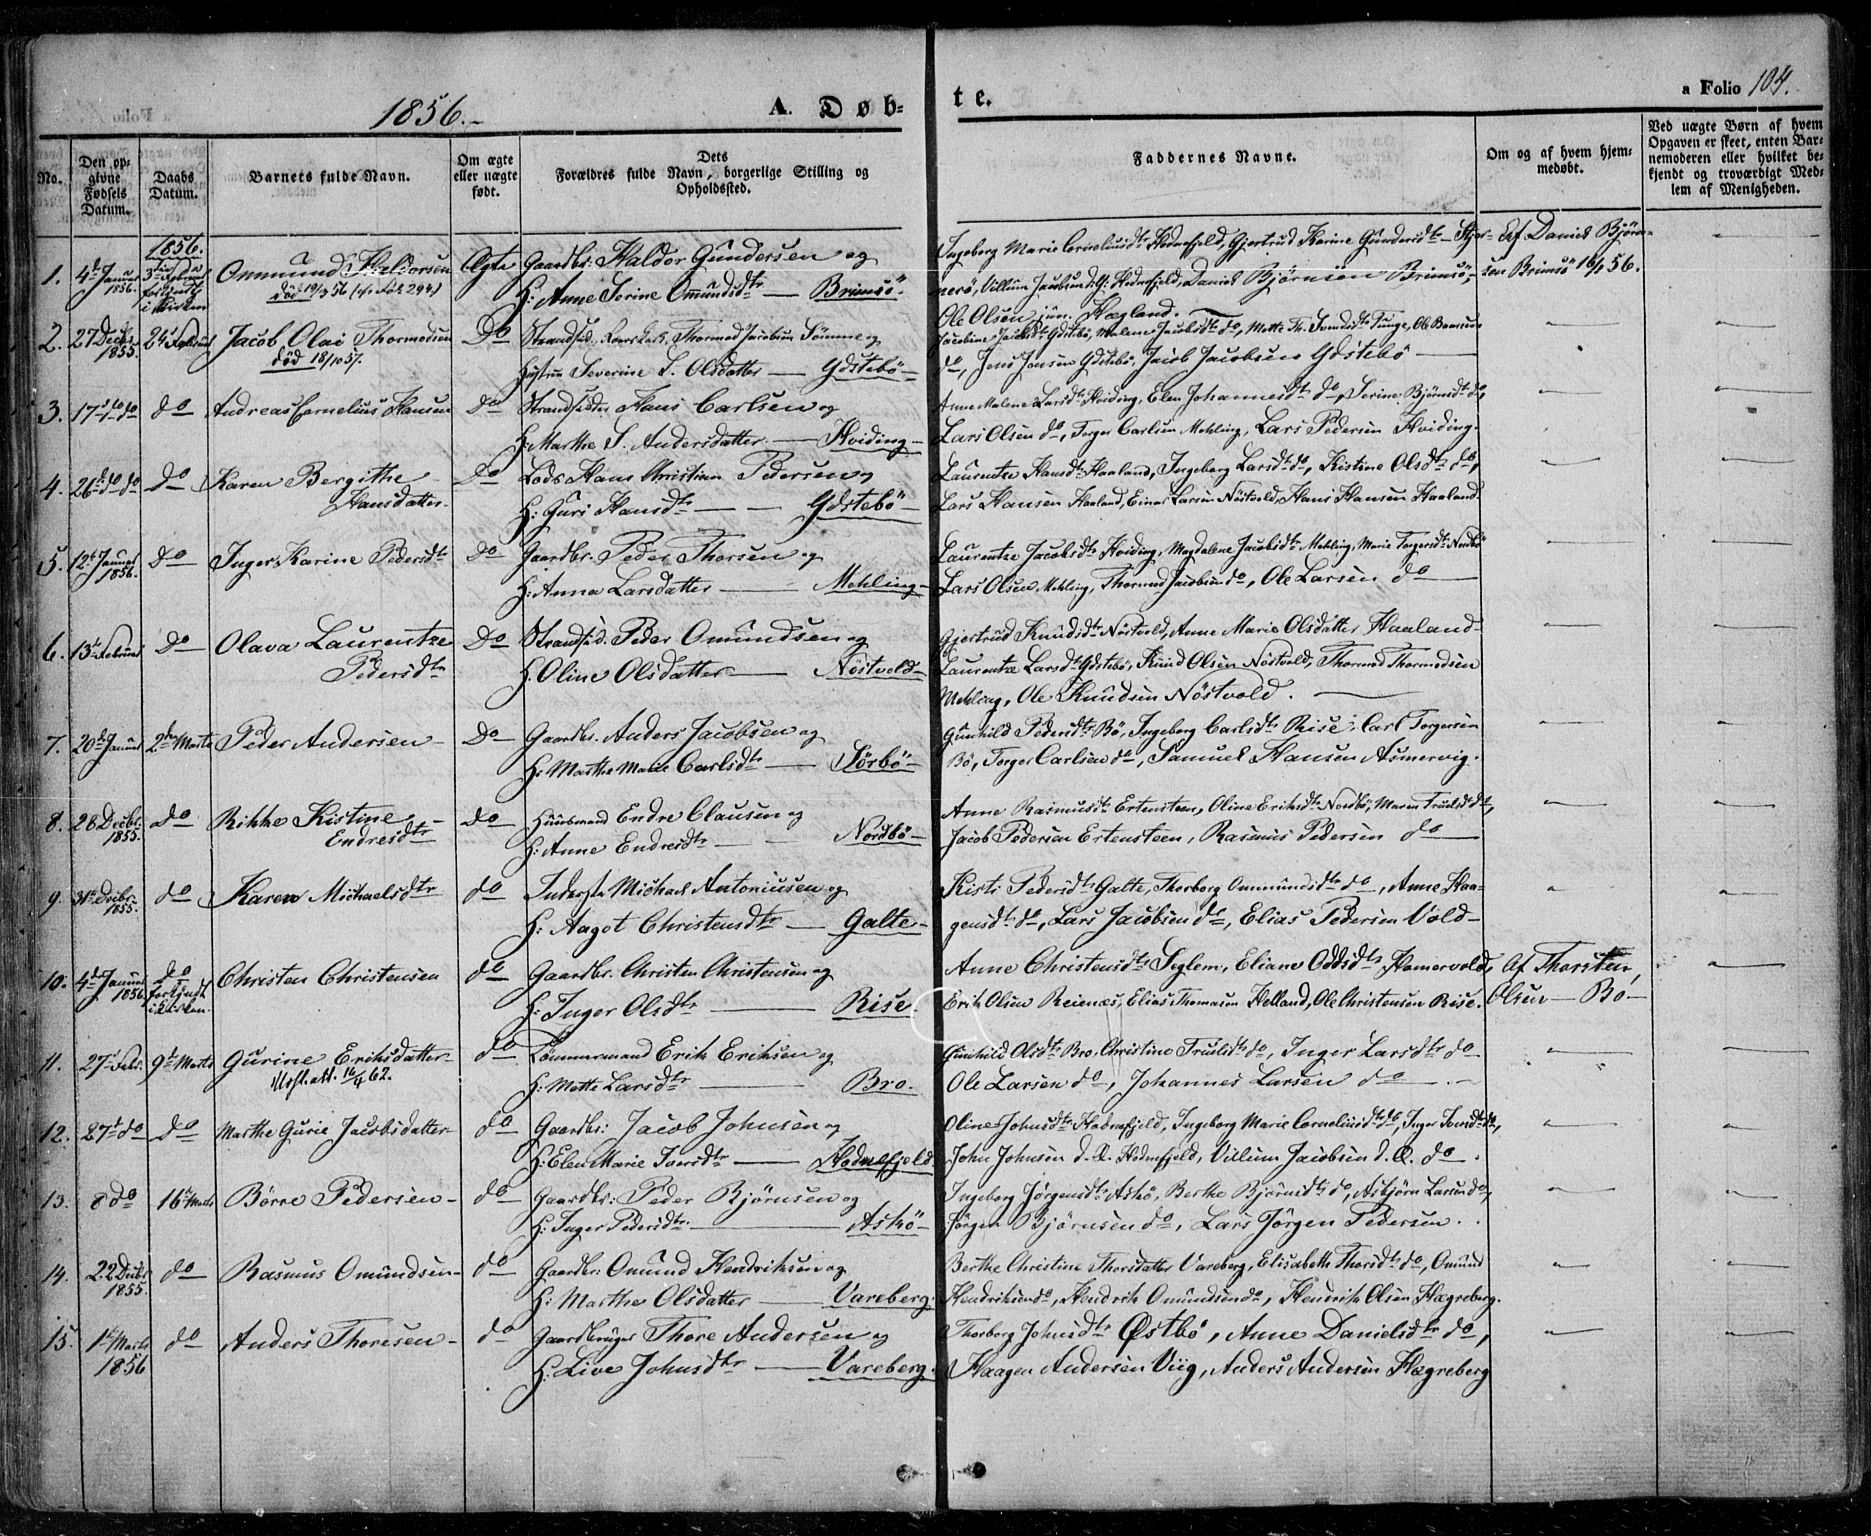 1856.
A. Døb-
te.
a Folio 104.
No.
Den op-
givne
Fødsels
Datum.
Daabs
Datum.
Barnets fulde Navn.
Om ægte
eller uægte
født.
Dets
Forældres fulde Navn, borgerlige Stilling og
Opholdssted.
Faddernes Navne.
Om og af hvem hjem-
medøbt.
Ved uægte Børn af hvem
Opgaven er skeet, enten Bar-
nemoderen eller hvilket be-
kjendt og troværdigt Med-
lem af Menigheden.
1856.
1. 4de Januar 1856. Ommund Haldorsen Ægte Gaardbr. Haldor Gundersen og
H: Anne Serine Ommundsdtr — Brimsö.
Ingeborg Marie Corneliusdtr Hodnefjeld, Gjertrud Karine Gundersdtr
Villum Jacobsen Hodnefjeld, Daniel Björnsen Brimsö,
Ole Olsen jun. Hægland.
Af Daniel Björn-
sen Brimsö 56.
2. 27 Decbr 1855. 24 Februar Jacob Olai Thormodsen Do Strandsid. Thormod Jacobsen Sömme og
död 18/10 57.
Hustru Severine S. Olsdatter — Ydstebö
Jacobine Jacobsdtr Ydstebö, Malene Jacobsdtr do, Mette Th. Svendsdtr Tunge,
do, Jens Jensen Ydstebö, Jacob Jacobsen Ydstebö
3. 17 do do do Andreas Cornelius Hansen Do Strandsidder Hans Carlsen og
H: Marthe S. Andersdatter — Hviding
Anne Malene Larsdtr Hviding, Elen Johannesdtr do, Serine Björnsdtr do,
Lars Olsen do, Torger Carlsen Mehling, Lars Pedersen Hviding.
4. 26 do do do Karen Bergithe Hansdatter. Do Lods Hans Christian Pedersen og
H: Guri Hansdtr — Ydstebö
Laurentze Hansdtr Haaland, Ingeborg Larsdtr do, Kistine Olsdtr do,
Lars Hansen Haaland, Einar Larsen Nöstvold, Hans Hansen Haaland.
5. 12 Januar 1856. do Inger Karine Pedersdtr Do Gaardbr. Peder Thorsen og
H: Anna Larsdatter — Mehling
Laurentze Jacobsdtr Hviding, Magdalene Jacobsdtr Mehling, Marie Torgersdtr Nordbö
Lars Olsen Mehling, Thormod Jacobsen do, Ole Larsen do
6. 13 Februar Do Olava Laurentze Pedersdtr Do Strandsid. Peder Omundsen og
H. Oline Olsdatter — Nöstvold
Gjertrud Knudsdtr Nöstvold, Anne Marie Olsdatter Haaland
Laurentze Larsdtr Ydstebö, Knud Olsen Nöstvold, Thormod Thormodsen
Mehling, Ole Knudsen Nöstvold.
7. 20 Januar 2den Marts Peder Andersen Do Gaardbr. Anders Jacobsen og
H: Marthe Marie Carlsdtr — Sörbö
Gunhild Pedersdtr Bö, Ingeborg Carlsdtr Rise, Carl Torgersen
Bö, Torger Carlsen do, Samuel Hansen Asmervig.
8. 28 Decbr. 1855. do Rikke Kistine Endresdtr do Huusmand Endre Clausen og
H: Anne Endresdtr — Nordbö
Anne Rasmusdtr Ertensteen, Oline Eriksdtr Nordbö, Maren Truelsdtr do,
Jacob Pedersen Ertensteen, Rasmus Pedersen do
9. 31 Decbr. 1855. do Karen Michaelsdtr do Inderste Michael Antoniusen og
H: Aagot Christensdtr — Galte
Kisti Pedersdtr Galte, Thorborg Ommundsdtr do, Anne Haa-
gensdtr do, Lars Jacobsen do, Elias Pedersen Vold
10. 4de Januar 1856. do Christen Christensen do Gaardbr: Christen Christensen og
H: Inger Olsdtr — Rise.
Anne Christensdtr Seglem, Eliane Oddsdtr Hamervold,
Erik Olsen Reianæs, Elias Thomasen Helland, Ole Christensen Rise.
Af Thorsten
Olsen — Bö
11. 27 Febr. 9 Marts Gurine Eriksdatter do Tömmermand Erik Eriksen og
H: Mette Larsdtr — Bro.
Gunhild Olsdtr Bro, Christine Truelsdtr do, Inger Larsdtr do
Ole Larsen do, Johannes Larsen do
12. 27 do do Marthe Gurie Jacobsdatter do Gaardbr: Jacob Johnsen og
H: Elen Marie — Hodnefjeld
Oline Johnsdtr Hodnefjeld, Ingeborg Marie Corneliusdtr do, Inger do,
John Johnsen d. Æ. Hodnefjeld, Villum Jacobsen d. Æ. do.
13. 8 do 16 Marts Börre Pedersen do Gaardbr: Peder Björnsen og
H: Inger Pedersdtr — Askö
Ingeborg Jörgensdtr Askö, Berthe Björnsdtr do, Asbjörn Larsen do,
Jörgen Björnsen do, Lars Jörgen Pedersen.
14. 22 Decbr 1855. do Rasmus Omundsen do Gaardbr: Omund Hendriksen og
H: Marthe Olsdatter — Vareberg
Berthe Christine Thorsdatter Vareberg, Elisabeth Thorsdtr do, Omund
Hendriksen do, Hendrik Omundsen do, Hendrik Olsen Hægreberg.
15. 1 Marts 1856 do Anders Thoresen do Gaardbruger Thore Andersen og
H: Live Johnsdtr — Vareberg.
Thorborg Johnsdtr Østbö, Anne Danielsdtr do,
Haagen Andersen Viig, Anders Andersen Hægreberg